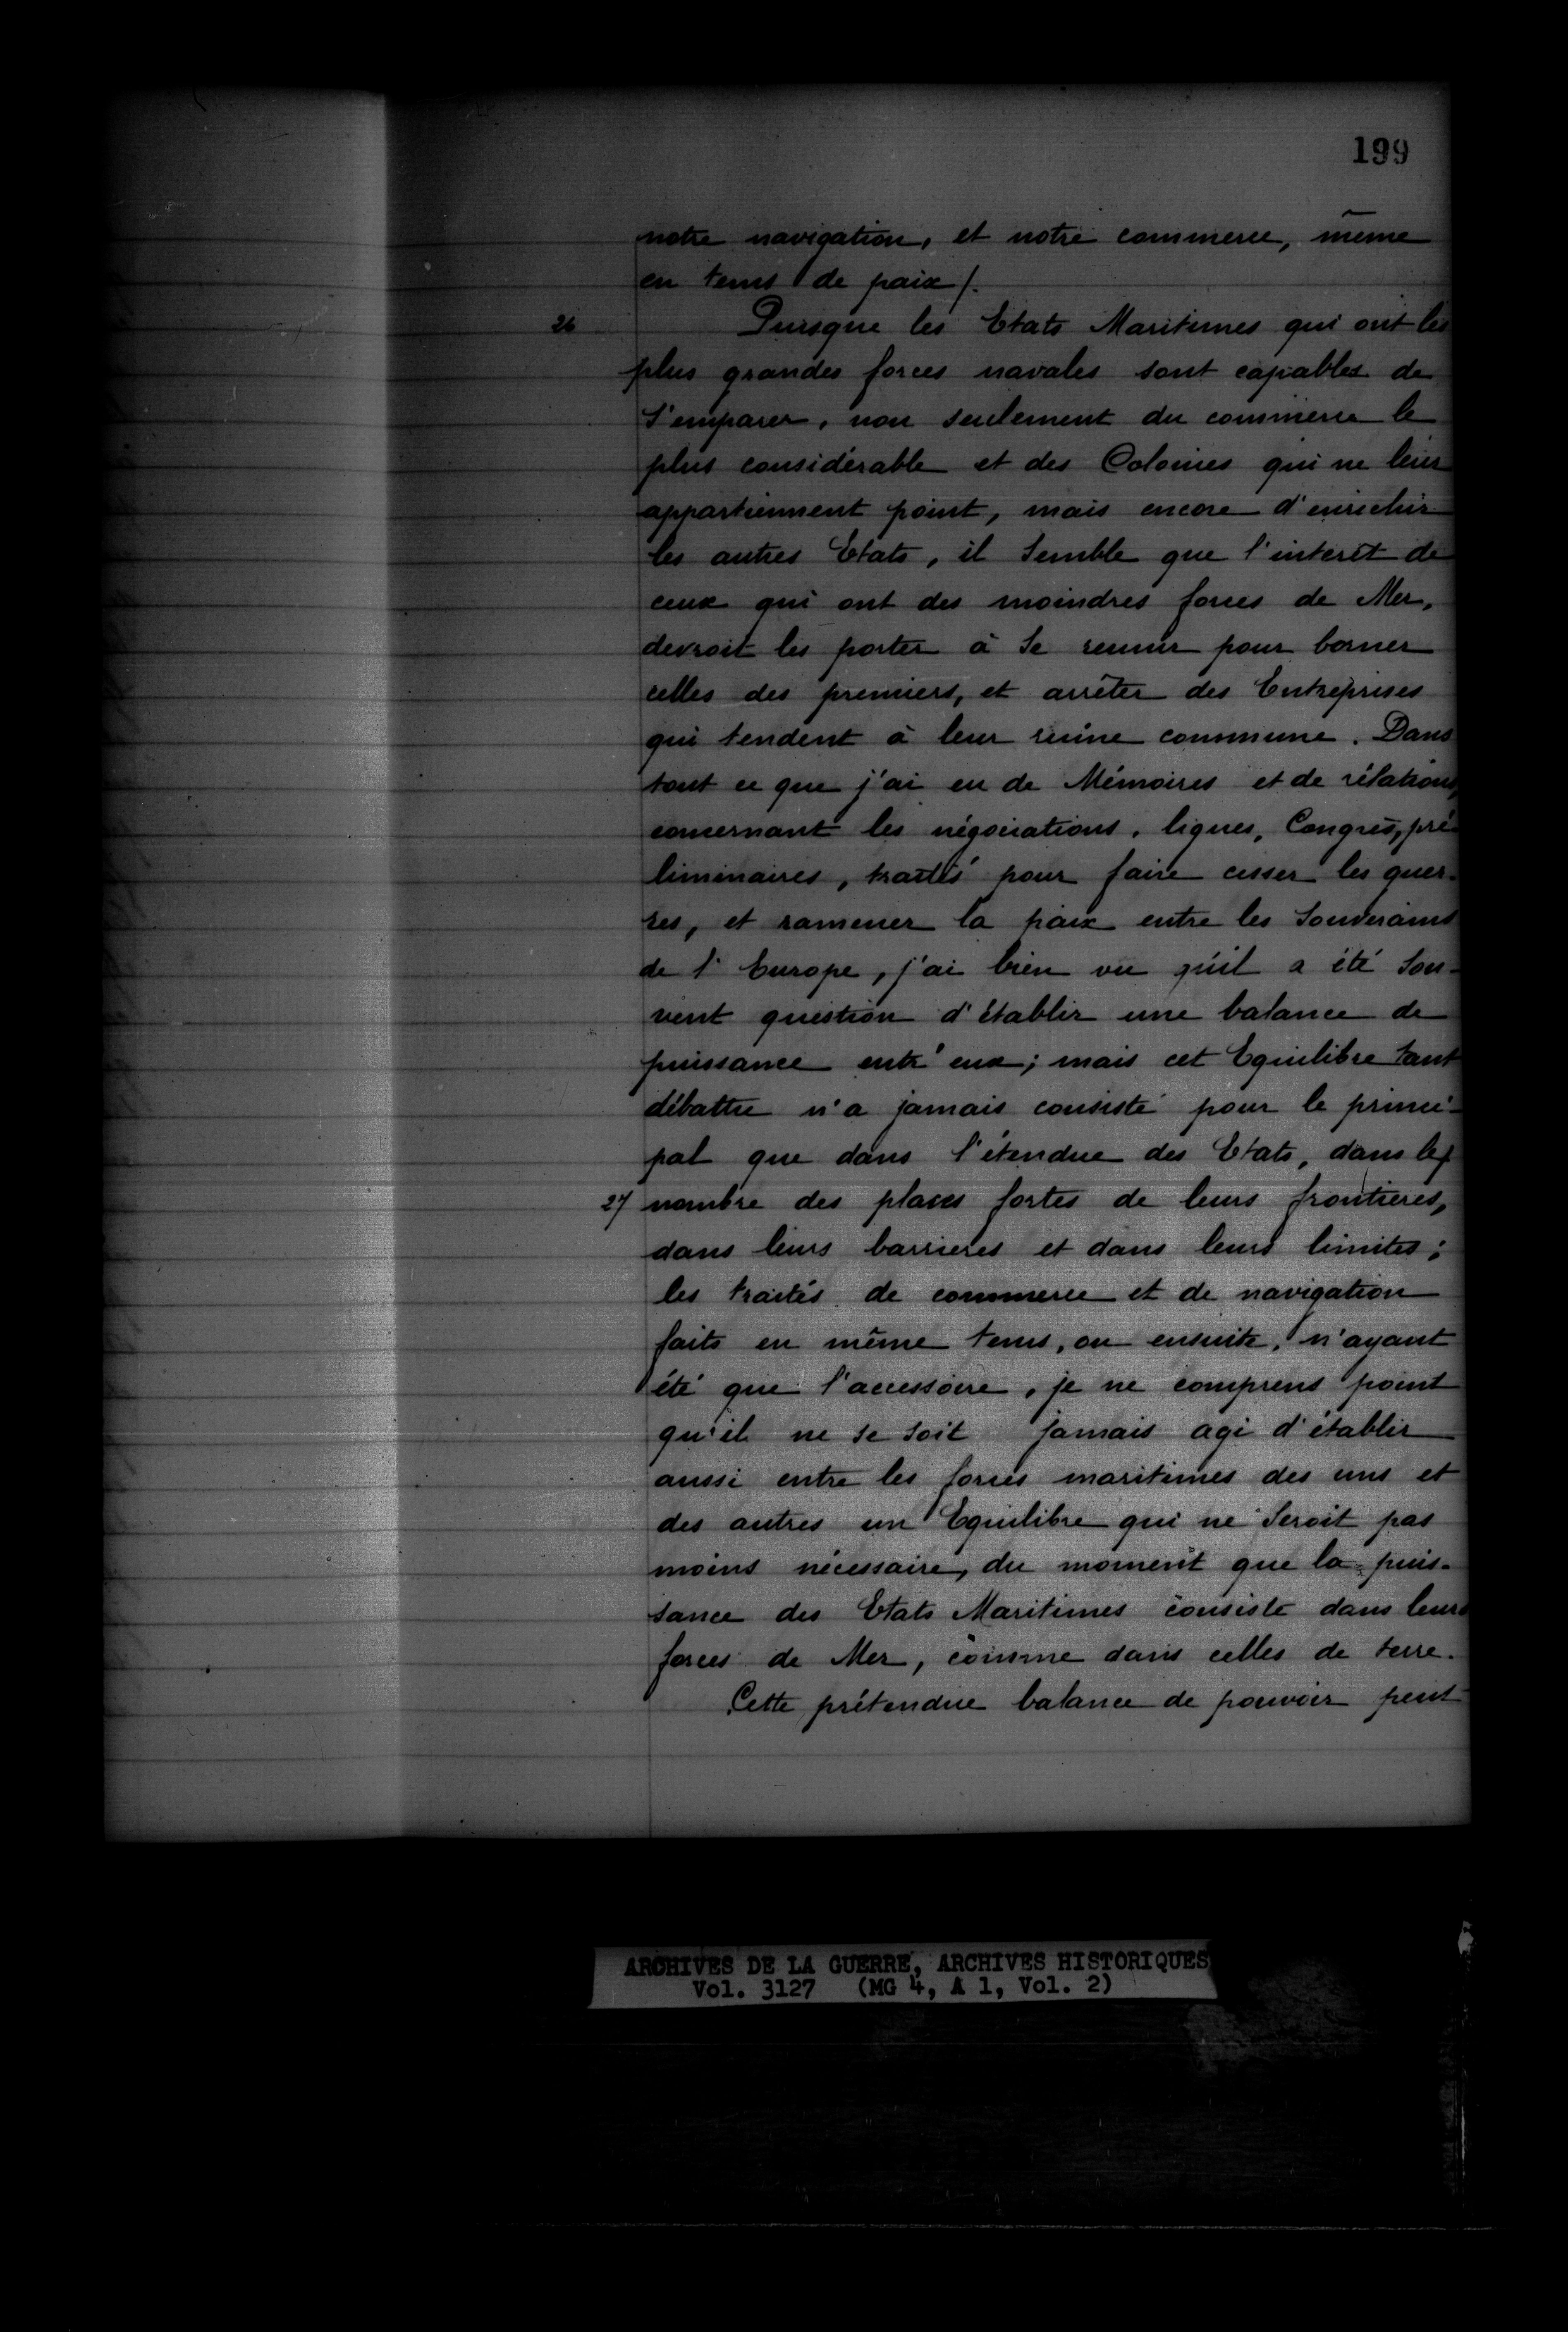 199
notre navigation, et notre commerce, même
en tems de paix /.
26
Puisque les Etats Maritimes qui ont les
plus grandes forces navales sont capables de
s'emparer, non seulement du commerce le
plus considérable et des Colonies qui ne leur
appartiennent point, mais encore d'enrichir
les autres Etats, il semble que l'interêt de
ceux qui ont des moindres forces de Mer,
devroit les porter à se reunir pour borner
celles des premiers, et arrêter des Entreprises
qui tendent à leur ruine commune. Dans
tout ce que j'ai eu de Mémoires et de rélations,
concernant les négociations, ligues, Congrès, pré-
liminaires, traités pour faire cesser les guer-
res, et ramener la paix entre les Souverains
de l'Europe, j'ai bien vu qu'il a été sou-
vent question d'établir une balance de
puissance entr'eux; mais cet Equilibre tant
débattu n'a jamais consisté pour le princi-
pal que dans l'étendue des Etats, dans le/
27 nombre des places fortes de leurs frontieres,
dans leurs barrieres et dans leurs limites;
les traités de commerce et de navigation
faits en même tems, ou ensuite, n'ayant
été que l'accessoire, je ne comprens point
qu'il ne se soit jamais agi d'établir
aussi entre les forces maritimes des uns et
des autres un Equilibre qui ne seroit pas
moins nécessaire, du moment que la puis-
sance des Etats Maritimes consiste dans leurs
forces de Mer, comme dans celles de terre.
Cette prétendue balance de pouvoir peut
ARCHIVES DE LA GUERRE, ARCHIVES HISTORIQUES
Vol. 3127 (MG 4, A 1, Vol. 2)